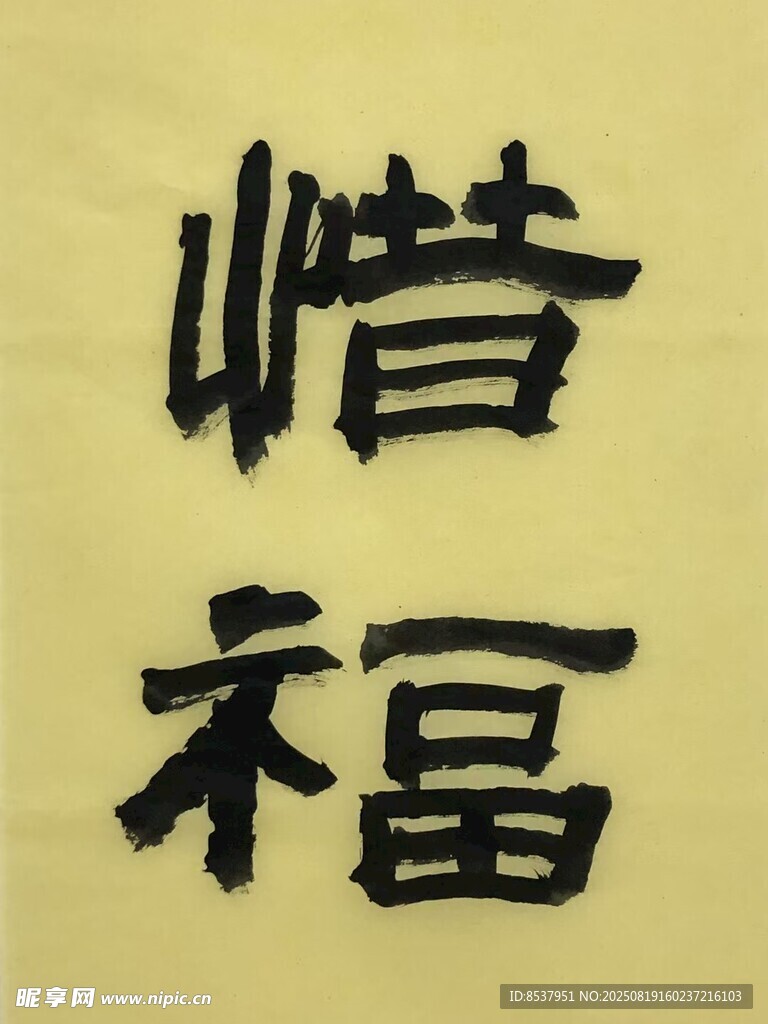 惜
福
昵享网 www.nipic.cn
ID:8537951 NO:20250819160237216103